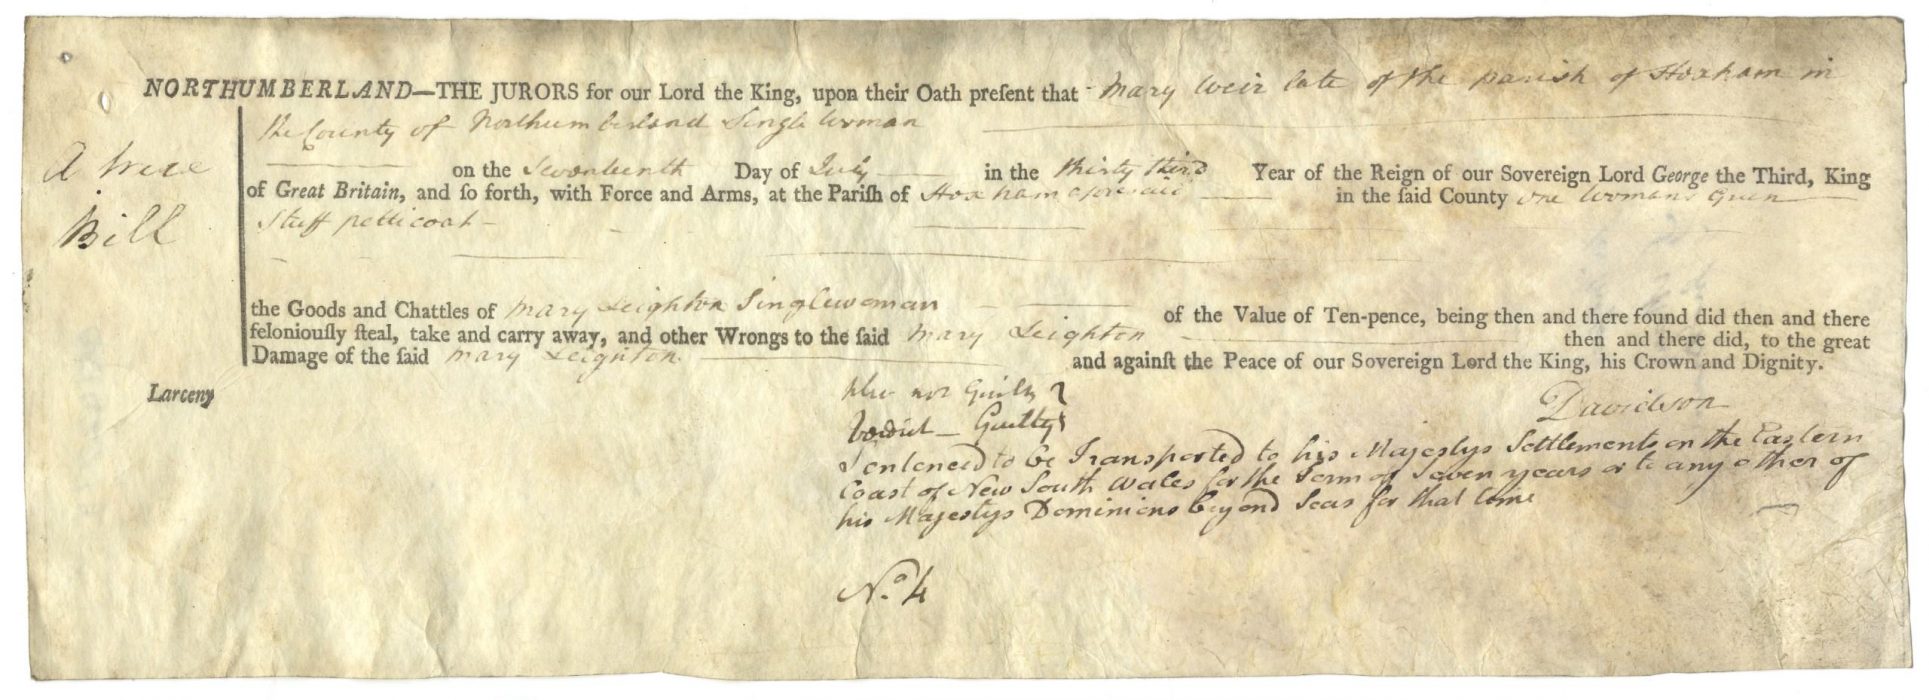 NORTHUMBERLAND—THE JURORS for our Lord the King, upon their Oath preſent that Mary Weir late of the parish of Hoxham in
the County of Northumberland Single Woman
A true
on the Seventeenth Day of July in the thirty third Year of the Reign of our Sovereign Lord George the Third, King
of Great Britain, and ſo forth, with Force and Arms, at the Pariſh of Hoxham aforesaid in the ſaid County one Womans Green
Bill
Stuff petticoat
the Goods and Chattles of Mary Leighton Singlewoman of the Value of Ten-pence, being then and there found did then and there
feloniouſly ſteal, take and carry away, and other Wrongs to the ſaid Mary Leighton then and there did, to the great
Damage of the ſaid Mary Leighton and againſt the Peace of our Sovereign Lord the King, his Crown and Dignity.
Larceny
not Guilty
Davidson
Verdict — Guilty
Sentenced to be Transported to his Majestys Settlements on the Eastern
Coast of New South Wales for the Term of Seven years or to any other of
his Majestys Dominions beyond Seas for that time
No. 4